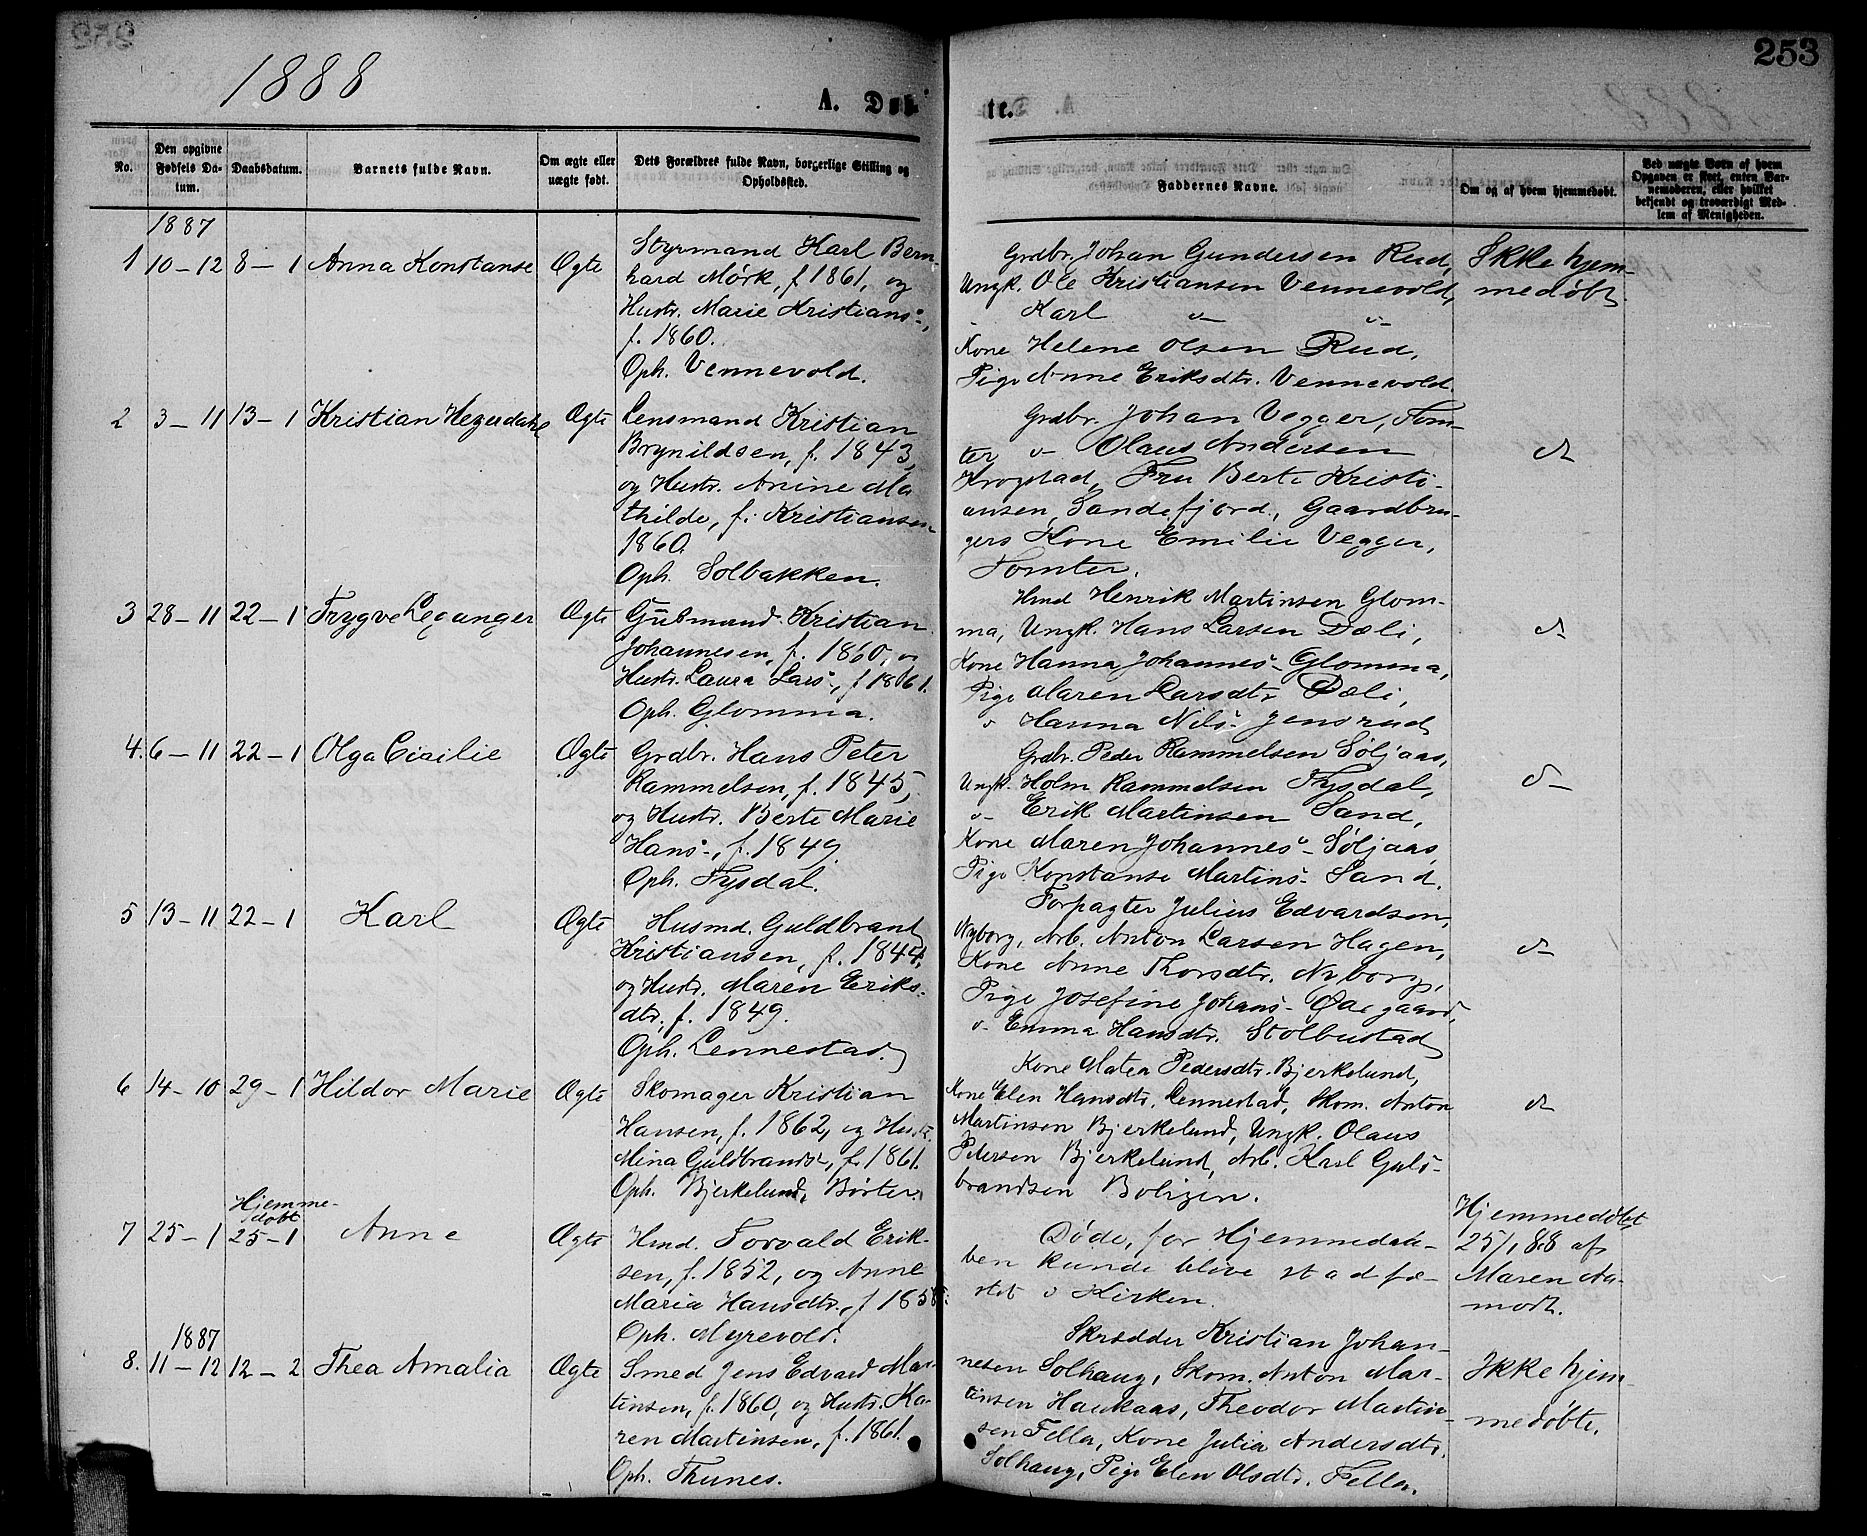 253
1888
A. Døb
te.
No.
Den opgivne Fødsels Da-
tum.
Daabsdatum.
Barnets fulde Navn.
Om ægte eller
uægte født.
Dets Forældres fulde Navn, borgerlige Stilling og
Opholdssted.
Faddernes Navne.
Om og af hvem hjemmedøbt.
Ved uægte Børn af hvem
Opgaven er skeet, enten Bar-
nemoderen, eller hvilket
bekjendt og troværdigt Med-
lem af Menigheden.
1887
1 10-12 8-1 Anna Konstanse Ægte
Styrmand Karl Bern-
hard Mørk, f. 1861, og
Hustr. Marie Kristians-,
f. 1860.
Oph. Vennevold.
Grdbr. Johan Gundersen Rud,
Ungk. Ole Kristiansen Vennevold,
Karl
Kone Helene Olsen Rud,
Pige Anne Eriksdtr. Vennevold
Ikke hjem-
medøbt
2 3-11 13-1 Kristian Hegerdahl Ægte
Lensmand Kristian
Brynildsen, f. 1843,
og Hustr. Anine Ma
thilde, f. Kristiansen
1860.
Oph. Solbakken.
Grdbr. Johan Vegger, Tom-
ter Olaus Andersen
Krogstad, Fru Berte Kristi-
ansen, Sandefjord, Gaardbru-
gers Kone Emilie Vegger,
Tomter.
3 28-11 22-1 Trygve Leganger Ægte
Gulsmand Kristian
Johannesen, f. 1860, og
Hustr. Laura Lars-, f 1861.
Oph. Glomma.
Hmd Henrik Martinsen Glom-
ma, Ungk. Hans Larsen Dæli,
Kone Hanna Johannes- Glomma,
Pige Maren Larsdtr Dæli,
Hanna Nils- Jensrud
4. 6-11 22-1 Olga Cicilie Ægte
Grdbr. Hans Peter
Rammelsen, f. 1845,
og Hustr. Berte Marie
Hans-, f. 1849.
Oph. Fysdal.
Grdbr. Peder Rammelsen Søljaas,
Ungk. Holm Rammelsen Fysdal,
Erik Martinsen Sand,
Kone Maren Johannes- Søljaas,
Pige Konstanse Martins- Sand.
5 13-11 22-1 Karl Ægte
Husmd. Guldbrand
Kristiansen, f. 1844,
og Hustr. Maren Eriks-
dtr, f. 1849.
Oph. Lennestad
Forpagter Julius Edvardsen,
Nyborg, Arb. Anton Larsen Hagen,
Kone Anne Thorsdtr. Nyborg,
Pige Josefine Johans-
Emma Hansdtr. Stolbustad
6 14-10 29-1 Hildor Marie Ægte
Skomager Kristian
Hansen, f. 1862, og Hustr.
Mina Guldbrands-, f. 1861.
Oph. Bjerkelund, Børter.
Kone Matea Pedersdtr. Bjerkelund,
Kone Elen Hansdtr. Lennestad, Skom. Anton
Martinsen Bjerkelund, Ungk. Olaus
Petersen Bjerkelund, Arb. Karl Guld-
brandsen Boligen.
Hjemme-
døbt
7 25-1 25-1 Anne Ægte
Hmd. Torvald Erik-
sen, f. 1852, og Anne
Maria Hansdtr., f 1858.
Oph. Myrevold.
Døde, før Hjemmedaa-
ben kunde blive stadfæ-
stet i Kirken.
Hjemmedøbt
25/1 88 af
Maren Aa-
modt.
1887
8. 11-12 12-2 Thea Amalia Ægte
Smed Jens Edvard Mar-
tinsen, f. 1860, og Hustr. Ka-
ren Martinsen, f. 1861.
Oph. Thunes.
Skrædder Kristian Johan-
nesen Solhaug, Skom. Anton Mar-
tinsen Haukaas, Theodor Martin-
sen Fella, Kone Julia Andersdtr.
Solhaug, Pige Elen Olsdtr. Fella.
Ikke hjem-
medøbte.